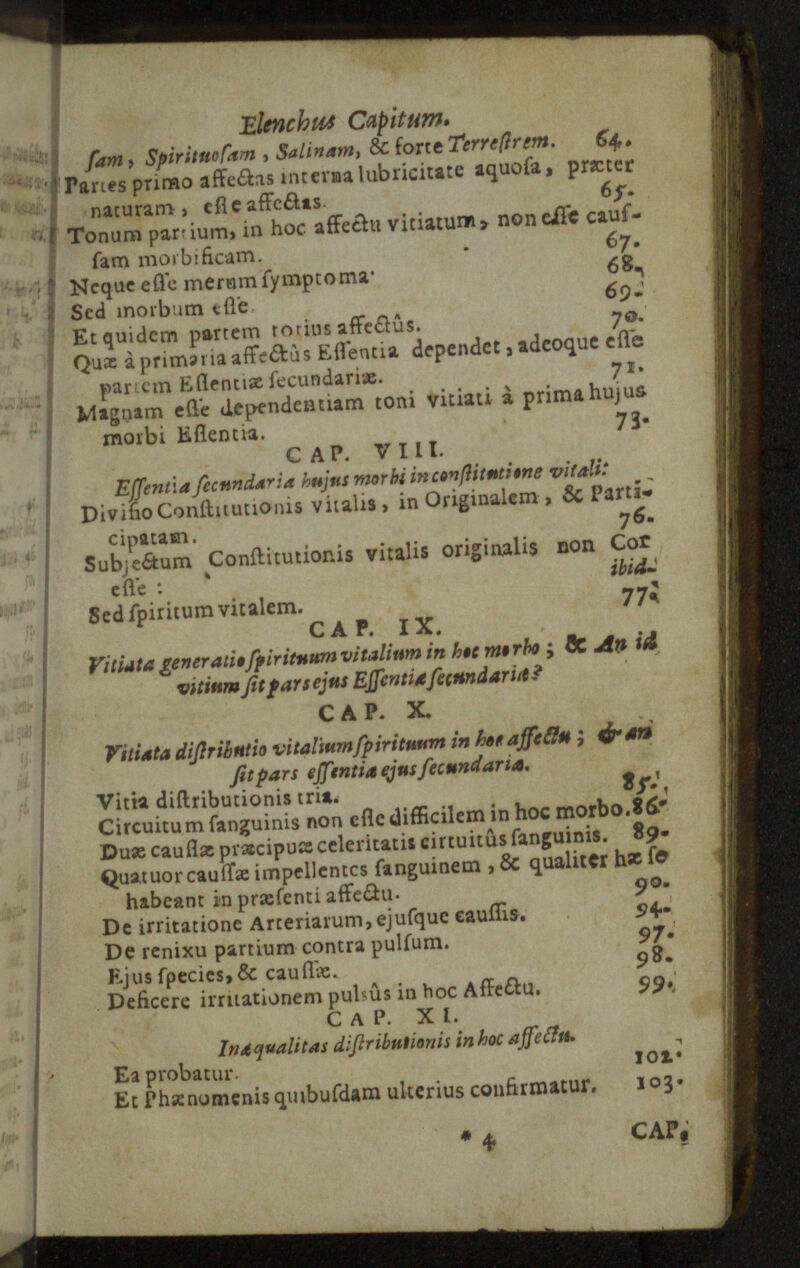 Elenchus Capitum.
ſam, Spirituoſam, Salinam, & forte Terreſtrem. 64.
Partes primo affectas interna lubricitate aquoſa, præter
naturam, eſſe affectas. 65.
Tonum partium, in hoc affectu vitiatum, non eſſe cauſ-
ſam morbificam. 67.
Neque eſſe merum ſymptoma. 68.
Sed morbum eſſe. 69.
Et quidem partem totius affectûs. 70.
Quæ à primaria affectûs Eſſentia dependet, adeoque eſſe
partem Eſſentiæ ſecundariæ. 71.
Magnam eſſe dependentiam toni vitiati à prima hujus
morbi Eſſentia. 73.
CAP. VIII.
Eſſentia ſecundaria hujus morbi in conſtitutione vitali:
Diviſio Conſtitutionis vitalis, in Originalem, & Parti-
cipatam. 76.
Subjectum Conſtitutionis vitalis originalis non Cor
eſſe: ibid.
Sed ſpiritum vitalem. 77.
CAP. IX.
Vitiata generatio ſpirituum vitalium in hoc morbo; & An id
vitium ſit pars ejus Eſſentiæ ſecundariæ?
CAP. X.
Vitiata diſtributio vitalium ſpirituum in hoc affectu; & an
ſit pars eſſentiæ ejus ſecundaria.
Vitia diſtributionis tria. 85.
Circuitum ſanguinis non eſſe difficilem in hoc morbo. 86.
Duæ cauſſæ præcipuæ celeritatis circuitûs ſanguinis. 89.
Quatuor cauſſæ impellentes ſanguinem, & qualiter hæ ſe
habeant in præſenti affectu. 90.
De irritatione Arteriarum, ejuſque cauſſis. 94.
De renixu partium contra pulſum. 97.
Ejus ſpecies, & cauſſæ. 98.
Deficere irritationem pulsûs in hoc Affectu. 99.
CAP. XI.
Inæqualitas diſtributionis in hoc affectu.
Ea probatur. 102.
Et Phænomenis quibuſdam ulterius confirmatur. 103.
* 4 CAP.